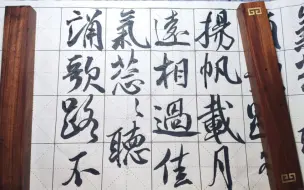 揚帆載月
遠相過佳
氣葱〻聽
誦歌路不